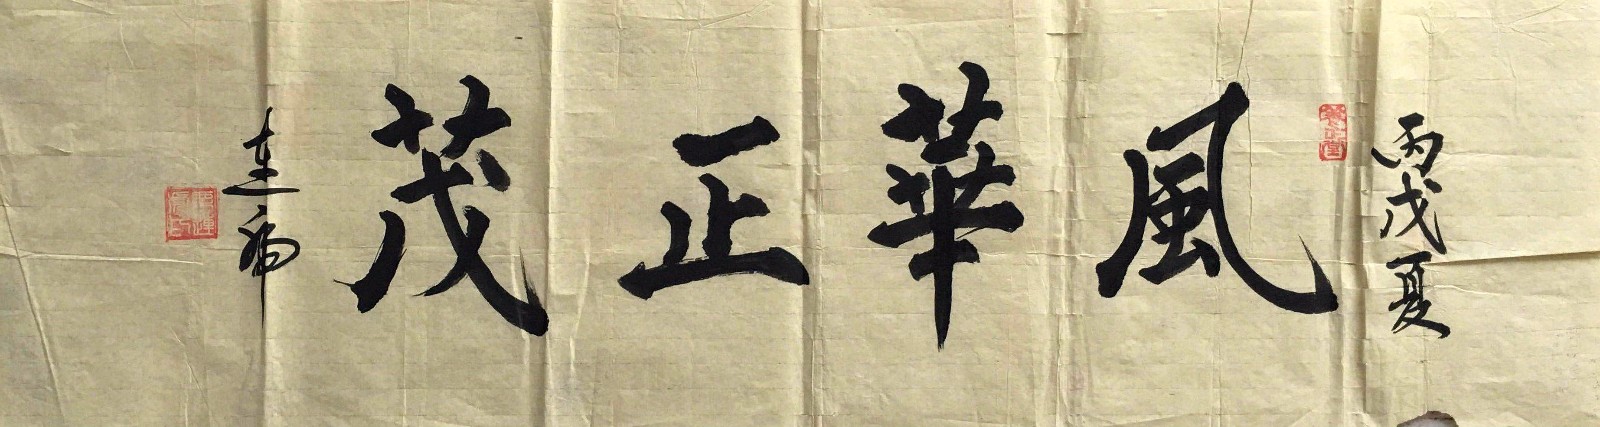 丙戌夏
風華正茂